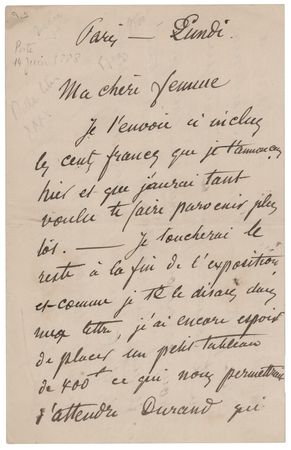 Paris — Lundi.
Ma chère femme
Je t'envoie ci inclus
les cents francs que je t'annonçais
hier et que j'aurai tant
voulu te faire parvenir plus
tôt. — Je toucherai le
reste à la fin de l'exposition
et comme je te le disais dans
ma lettre, j'ai encore espoir
de placer un petit tableau
de 400f ce qui nous permettrait
d'attendre Durand qui